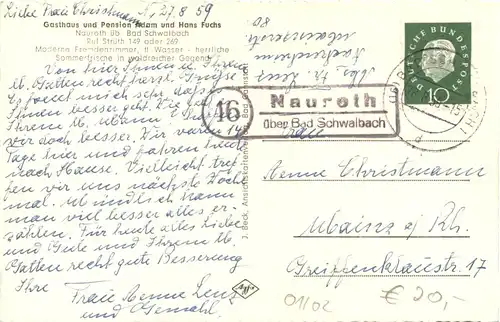 Liebe Frau Christmann N, 27.8.59
Gasthaus und Pension Adam und Hans Fuchs
Nauroth üb. Bad Schwalbach
Ruf Strüth 149 oder 269
Moderne Fremdenzimmer, fl. Wasser - herrliche
Sommerfrische in waldreicher Gegend
Von hier Ihnen u. Ihrem
lb. Gatten recht herzl. Grüße
Es freut mich sehr daß es
Ihnen besser geht. Wie geht es
Ihrem lb. Mann?
doch besser. Wir waren 14
Tage hier und fahren heute
nach Hause. Vielleicht tref-
fen wir uns nächste Woche
mal. Mündlich kann
man viel besser alles er-
zählen. Für heute alles Liebe
und Gute und Ihrem lb.
Gatten recht gute Besserung
Ihre
Frau Aenne Lenz
und Gemahl.
Abs. Fr. Lenz
Mainzerstr.
80
J. Beck, Ansichtskarten
Bad
16
Nauroth
über Bad Schwalbach
DEUTSCHE BUNDESPOST
10
Frau
Aenne Christmann
Mainz a/Rh.
Greiffenklaustr. 17
01/02
€ 20,-